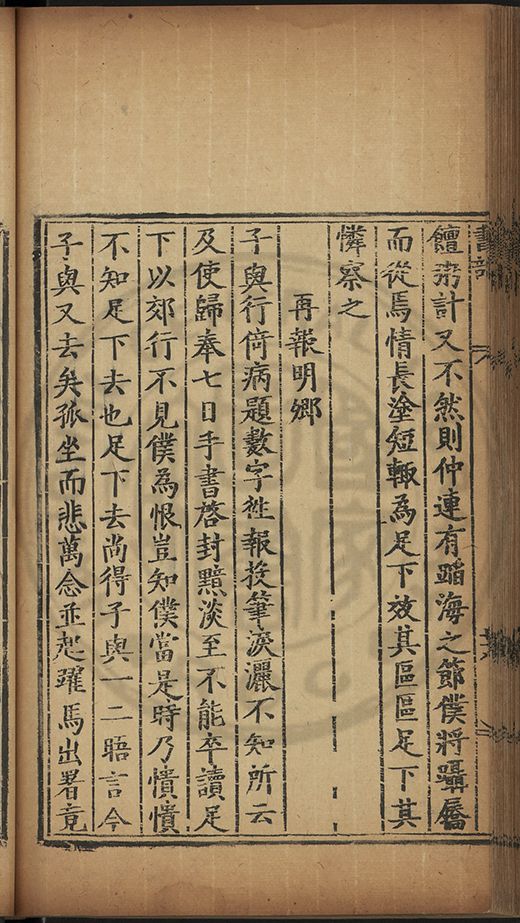 饘粥計又不然則仲連有蹈海之節僕將躡屩
而從焉情長塗短輙為足下效其區區足下其
憐察之
再報明卿
子與行倚病題數字往報投筆淚灑不知所云
及使歸奉七日手書啓封黯淡至不能卒讀足
下以郊行不見僕為恨豈知僕當是時乃憒憒
不知足下去也足下去尚得子與一二晤言今
子與又去矣孤坐而悲萬念並起躍馬出署竟